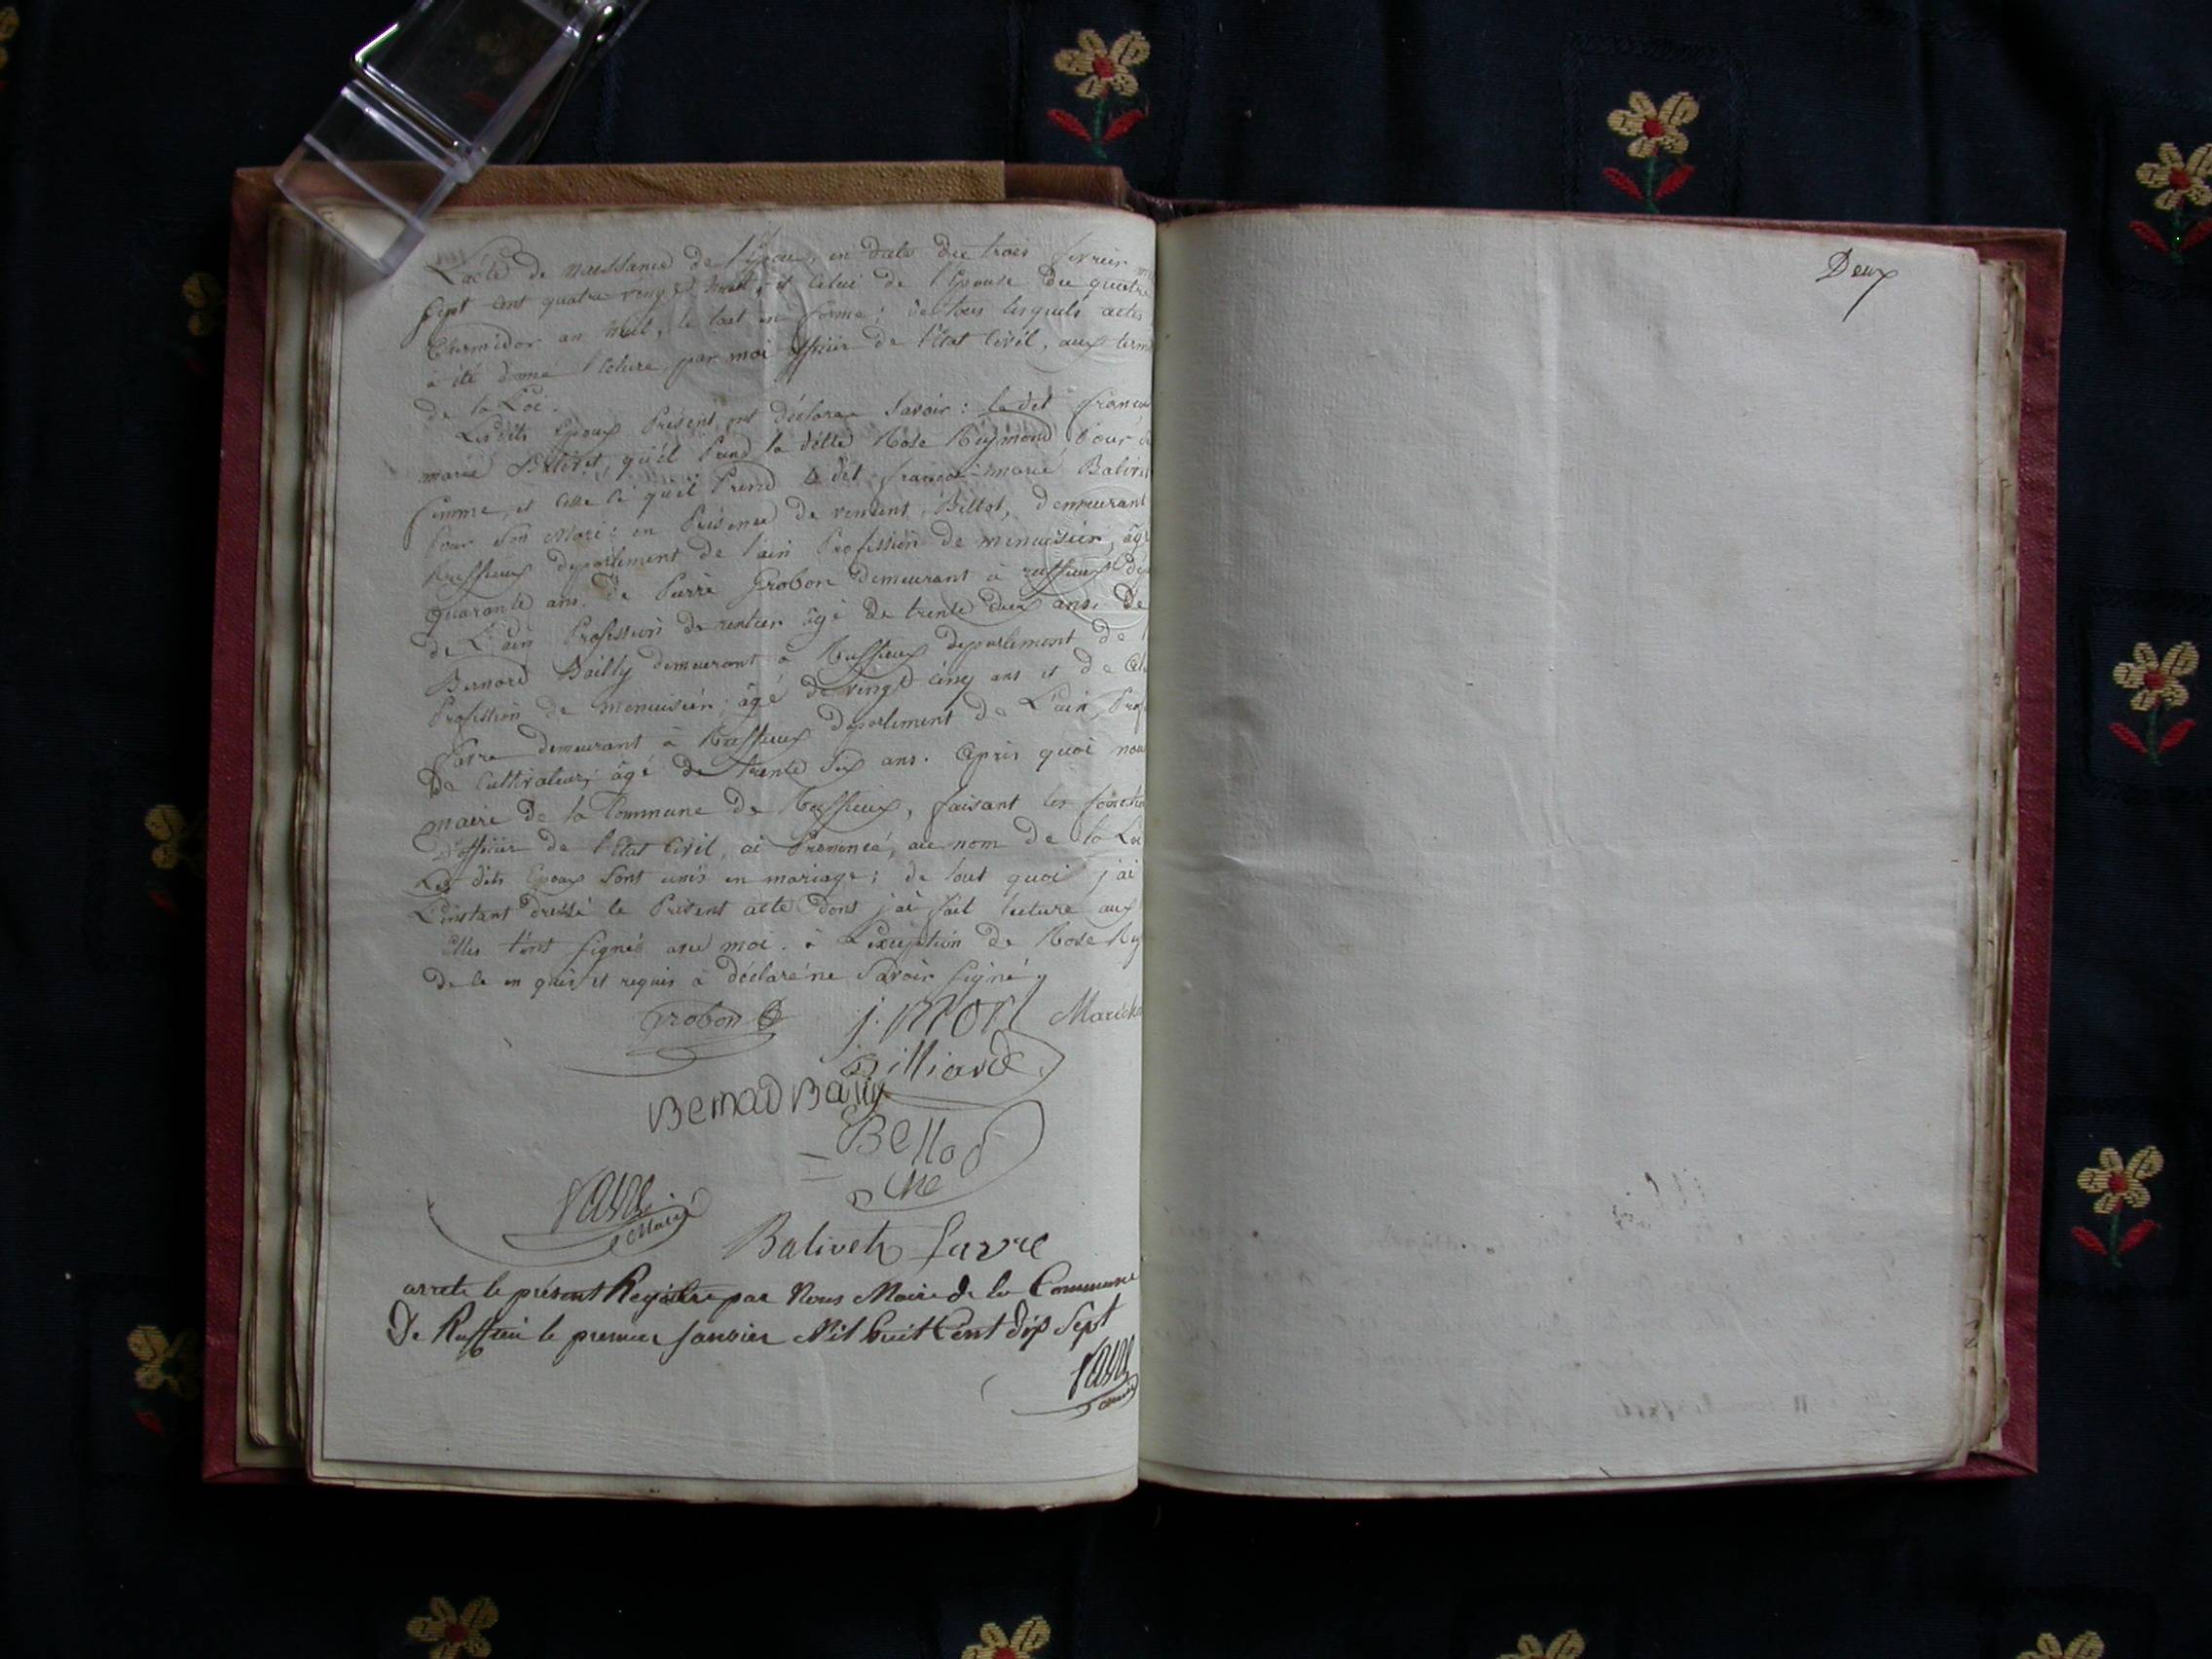 L'acte de naissance de l'Epoux, en date du trois fevrier
sept cent quatre vingt huit, et celui de l'Epouse du quatre
thermidor an huit, le tout en forme ; de tous lesquels actes
à été donné lecture, par moi officier de l'état Civil, aux term
de la Loi.
Lesdits Epoux Présent, ont déclarae Savoir : le dit françoi
marie Balivet, qu'il Prend la ditte Rose Reymond, Pour
femme, et celle ci quil Prend le dit françoi marie Balivet
Pour Son Mari ; en Présence de vincent Bellot, demeurant
Ruffieux département de l'ain Profession de menuisier, âgé
quarante ans. de Pierre Grobon demeurant à ruffieux dép
de L'ain Profession de rentier âgé de trente deux ans. De
Bernard Bailly demeurant à Ruffieux département de l
Profession de menuisier ; âgé de vingt cinq ans et de
favre demeurant à Ruffieux département de L'ain, Prof
De Cultivateur, âgé de trente six ans. Après quoi nou
maire de la Commune de Ruffieux, faisant les fonctio
d'officier de l'Etat Civil, ai Prononcé, au nom de la Loi
Les dits Epoux Sont unis en mariage ; de tout quoi j'ai
L'instant dressé le Présent acte dont j'ai fait lecture aux
Elles l'ont Signés avec moi. à L'exception de Rose Rey
de ce en quis et requis à déclaré ne Savoir Signé
Grobon
Marich
Billiard
Bernad Bailly
Bellod
cine
favre
Maire
Balivet favre
arrete le présent Registre par Nous Maire de la Commune
De Ruffieu le premier Janvier Mil huit Cent dix Sept
favre
maire
Deux